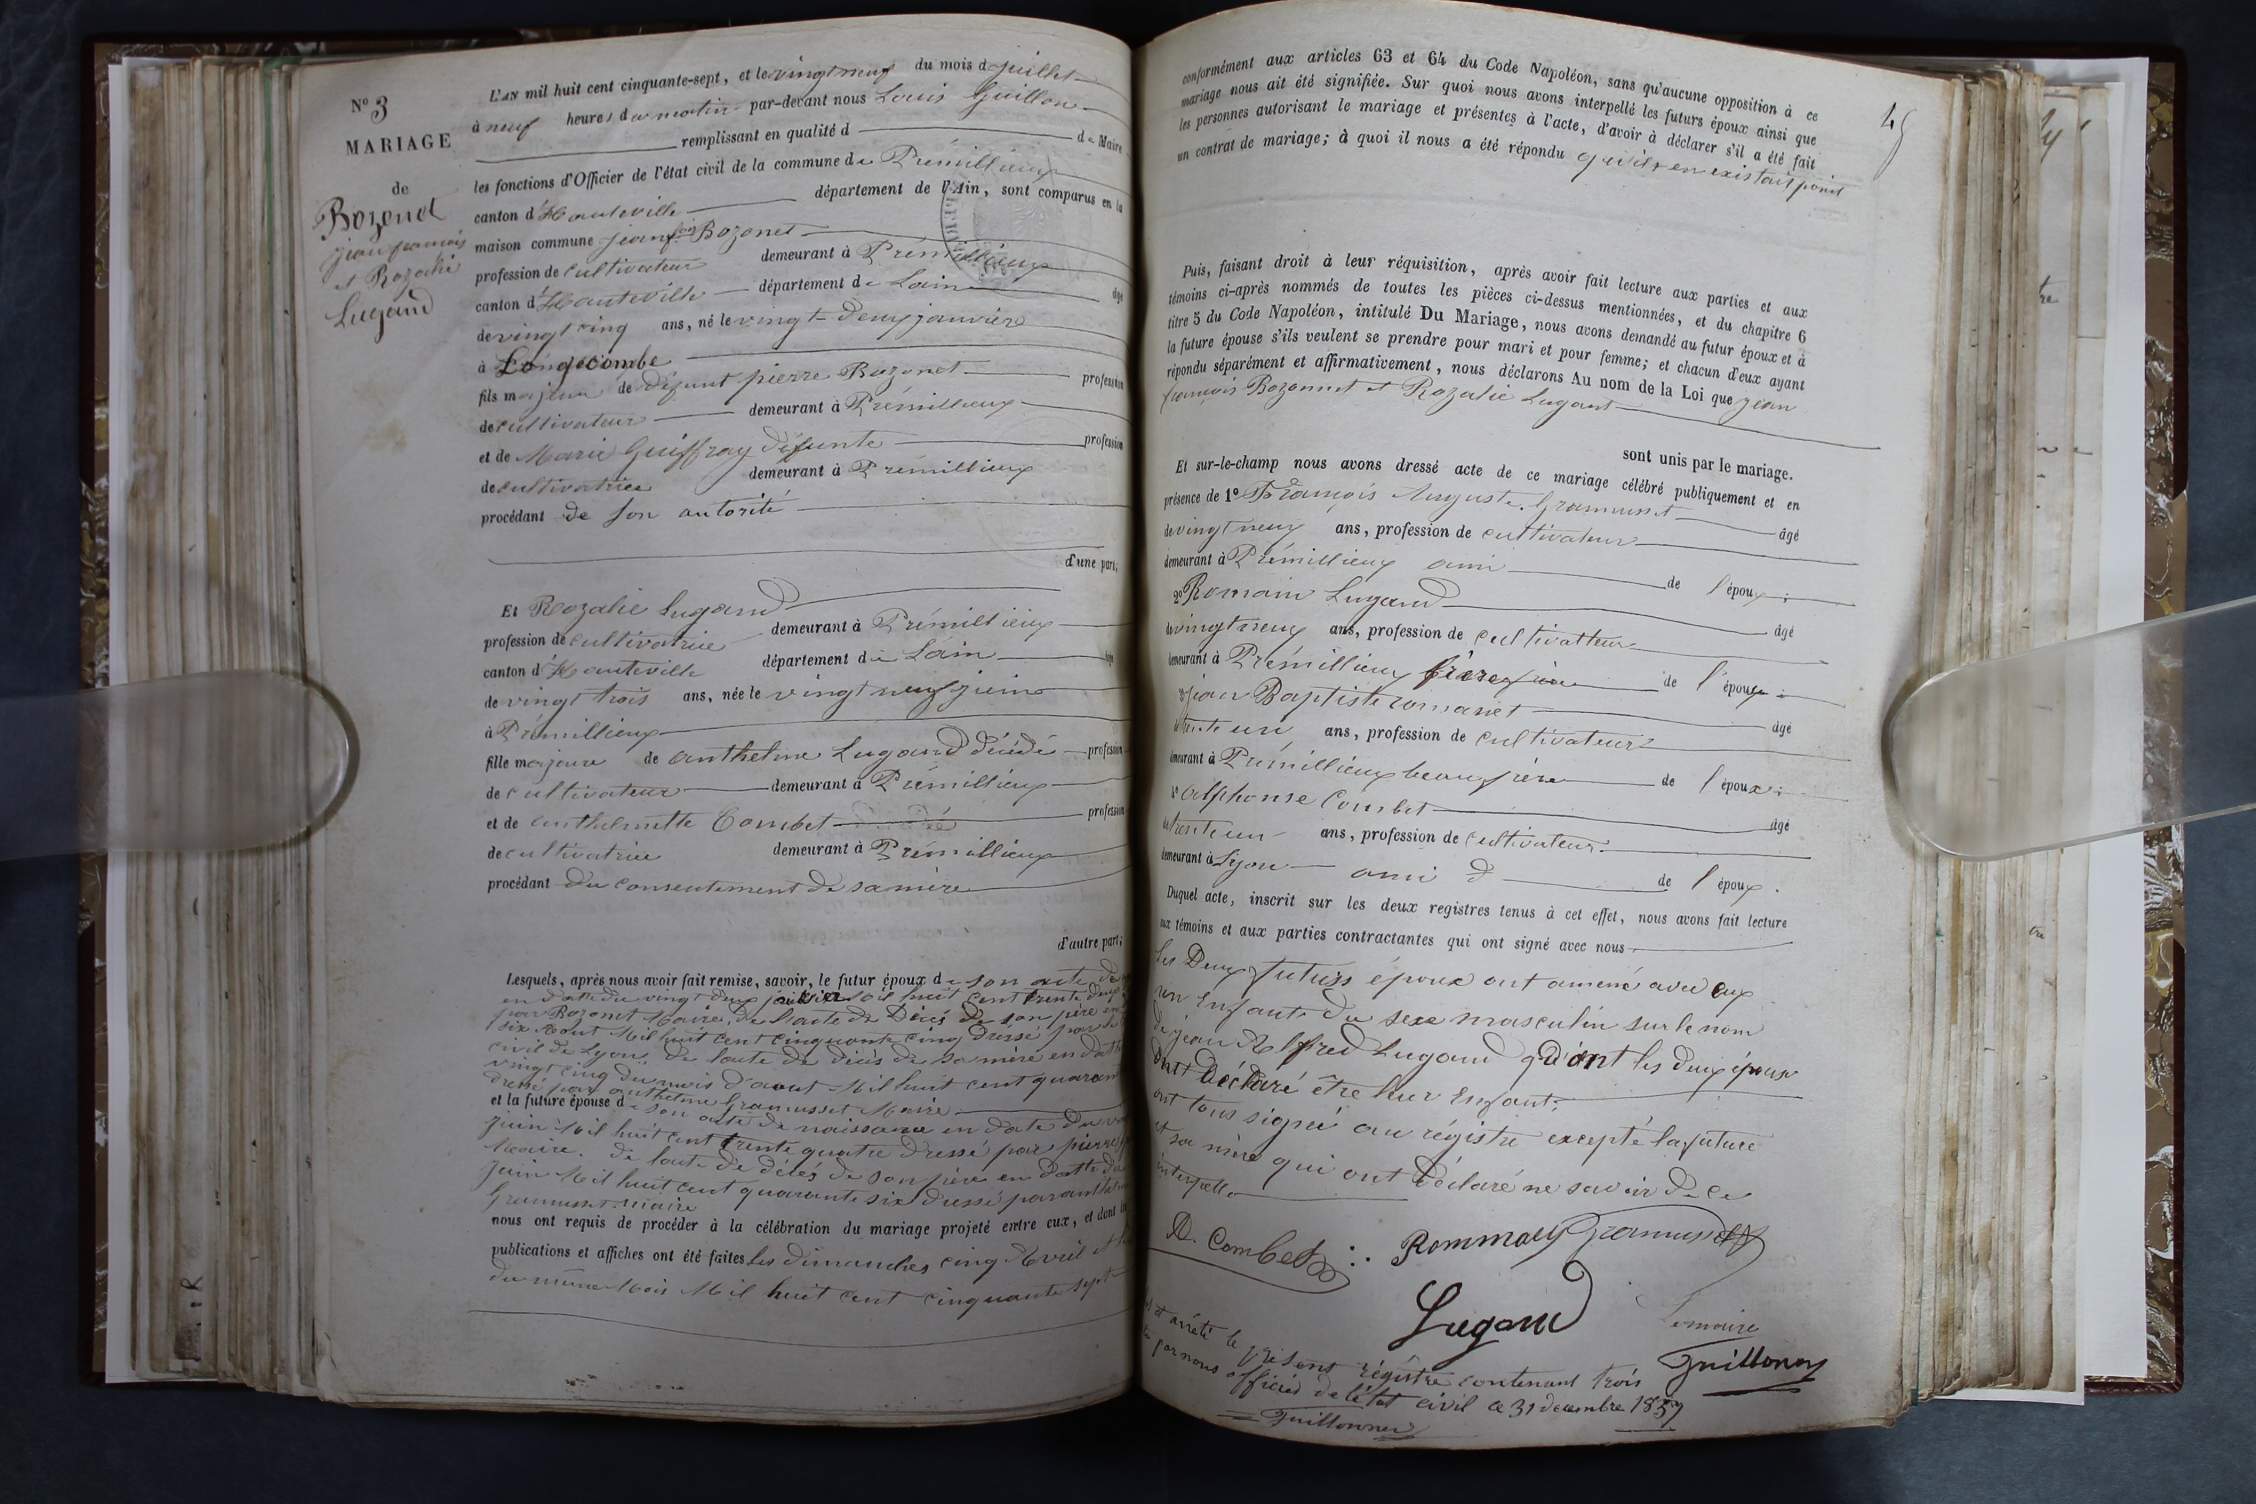 N° 3
MARIAGE
de
Bozonet
jean francois
et Rozalie
Lugand
L'AN mil huit cent cinquante-sept, et le vingt neuf du mois d juillet
à neuf heures du matin par-devant nous Louis Guillon
remplissant en qualité d de Maire
les fonctions d'Officier de l'état civil de la commune de Prémillieux
canton d'Hauteville département de l'Ain, sont comparus en la
maison commune jean fois Bozonet
profession de cultivateur demeurant à Prémillieux
canton d'Hauteville département de Lain âgé
de vingt cinq ans, né le vingt-deux janvière
à Longecombe
fils majeur de défunt pierre Bozonet profession
de cultivateur demeurant à Prémillieux
et de Marie Guiffray défunte profession
de cultivatrice demeurant à Prémillieux
procédant de son autorité
d'une part;
Et Rozalie Lugand
profession de cultivatrice demeurant à Prémillieux
canton d'Hauteville département de Lain
de vingt trois ans, née le vingt neuf juin
à Prémillieux
fille majeure de anthelme Lugand décédé profession
de cultivateur demeurant à Prémillieux
et de anthelmette Combet profession
de cultivatrice demeurant à Prémillieux
procédant du consentement de sa mère
d'autre part;
Lesquels, après nous avoir fait remise, savoir, le futur époux de son acte de
en datte du vingt deux janvier Mil huit cent trente deux
par Bozonet Maire, de l'acte de Décés de son père en
six Aout Mil huit cent cinquante cinq dressé par
civil de Lyon, de lacte de décès de sa mère en datte
vingt cinq du mois d'aout Mil huit cent quaran
dressé par anthelme Gramusset Maire
et la future épouse de son acte de naissance en date du
juin Mil huit cent trente quatre dressé par pierre
Maire. de lacte de décés de son père en datte du
juin Mil huit cent quarante six dressé par anthelme
Gramusset maire
nous ont requis de procéder à la célébration du mariage projeté entre eux, et dont
publications et affiches ont été faites les dimanches cinq Avril et
du même Mois Mil huit cent cinquante sept
49
conformément aux articles 63 et 64 du Code Napoléon, sans qu'aucune opposition à ce
mariage nous ait été signifiée. Sur quoi nous avons interpellé les futurs époux ainsi que
les personnes autorisant le mariage et présentes à l'acte, d'avoir à déclarer s'il a été fait
un contrat de mariage; à quoi il nous a été répondu qu'il n'en existait point
Puis, faisant droit à leur réquisition, après avoir fait lecture aux parties et aux
témoins ci-après nommés de toutes les pièces ci-dessus mentionnées, et du chapitre 6
titre 5 du Code Napoléon, intitulé Du Mariage, nous avons demandé au futur époux et à
la future épouse s'ils veulent se prendre pour mari et pour femme; et chacun d'eux ayant
répondu séparément et affirmativement, nous déclarons Au nom de la Loi que jean
françois Bozonnet et Rozalie Lugant
sont unis par le mariage.
Et sur-le-champ nous avons dressé acte de ce mariage célébré publiquement et en
présence de 1° François Auguste Gramusset âgé
de vingt neuf ans, profession de cultivateur
demeurant à Prémillieux ami de l'époux;
2° Romain Lugand âgé
de vingt neuf ans, profession de cultivatteur
demeurant à Prémillieux frère de l'épouse;
3° jean Baptiste romanet âgé
de trente un ans, profession de cultivateur
demeurant à Prémillieux beau frère de l'époux;
4° alphonse Combet âgé
de trente un ans, profession de cultivateur
demeurant à Lyon ami d de l'époux.
Duquel acte, inscrit sur les deux registres tenus à cet effet, nous avons fait lecture
aux témoins et aux parties contractantes qui ont signé avec nous.
les Deux futurs époux ont amené avec eux
un Enfant du sexe masculin sur le nom
de jean Alfred Lugand qu'ont les deux époux
ont déclaré être leur Enfant;
ont tous signé au régistre excepté la future
et sa mère qui ont déclaré ne savoir de ce
interpellé
A. Combet Rommaey Gramusset
Lugand
Le maire
Guillonon
et arrété le présent régistre contenant trois
par nous officier de l'état civil ce 31 decembre 1857
Guillonon